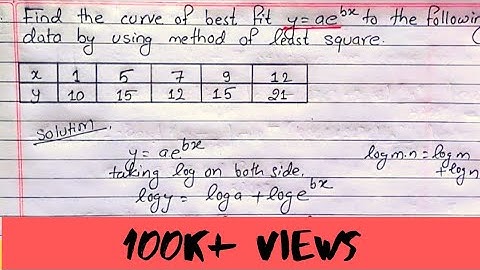 Find the curve of best fit y=ae^bx to the followin
data by using method of least square.
x 1 5 7 9 12
y 10 15 12 15 21
Solution.
y = ae^bx
taking log on both side.
logy = loga + loge^bx
log m.n = log m
+ log n
100K+ VIEWS